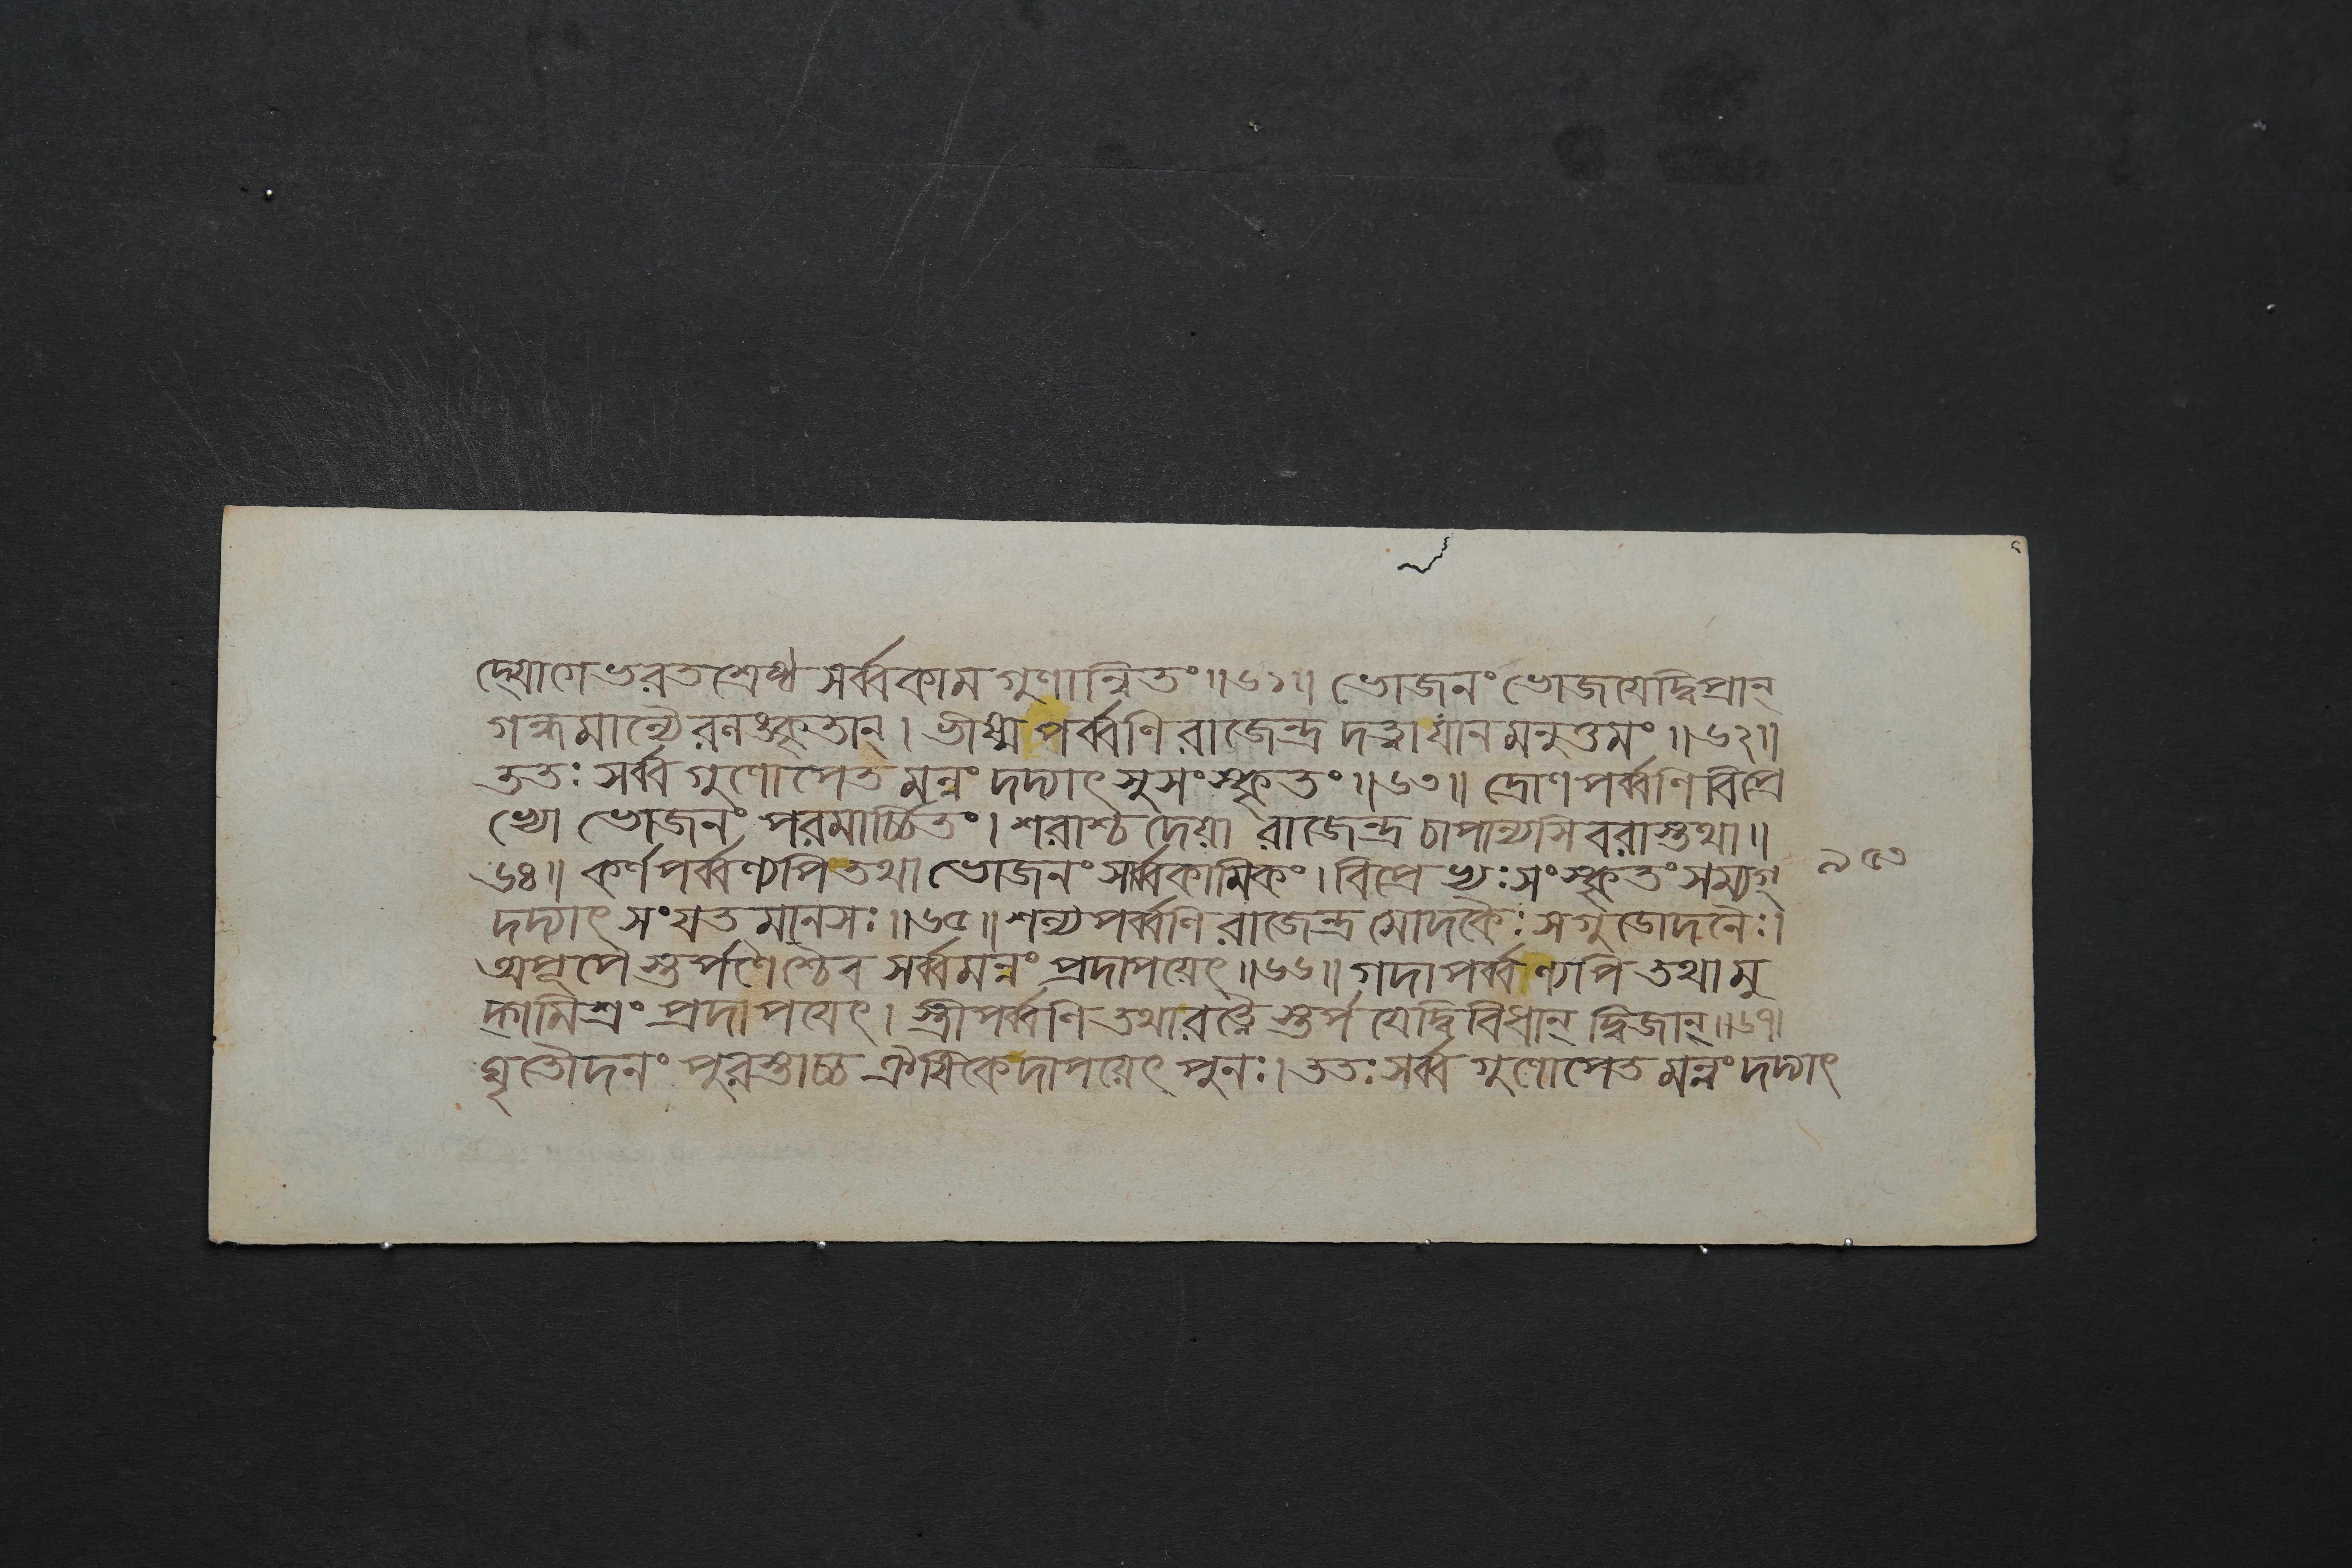 দ্যোগে ভরতশ্রেষ্ঠ সর্ব্বকামগুণান্বিতং॥৬১॥ ভোজনং ভোজযেদ্বিপ্রান্
গন্ধমাল্যৈরলঙ্কৃতান্। ভীষ্মপর্ব্বণি রাজেন্দ্র দত্ত্বা যানমনুত্তমং॥৬২॥
ততঃ সর্ব্বগুণোপেতমন্নং দদ্যাৎ সুসংস্কৃতং॥৬৩॥ দ্রোণপর্ব্বণি বিপ্রে
ভ্যো ভোজনং পরমার্চ্চিতং। শরাশ্চ দেয়া রাজেন্দ্র চাপান্যসিবরাস্তথা॥
৬৪॥ কর্ণপর্ব্বণ্যপি তথা ভোজনং সার্ব্বকামিকং। বিপ্রেভ্যঃ সংস্কৃতং সম্যগ্
৯৫৩
দদ্যাৎ সংযতমানসঃ॥৬৫॥ শল্যপর্ব্বণি রাজেন্দ্র মোদকৈঃ সগুডোদনৈঃ।
অপূপৈস্তর্পণৈশ্চৈব সর্ব্বমন্নং প্রদাপয়েৎ॥৬৬॥ গদাপর্ব্বণ্যপি তথা মু
দ্গমিশ্রং প্রদাপযেৎ। স্ত্রীপর্ব্বণি তথা রত্নৈস্তর্পযেদ্বিবিধান্ দ্বিজান্॥৬৭।
ঘৃতৌদনং পুরস্তাচ্চ ঐষিকে দাপয়েৎ পুনঃ। ততঃ সর্ব্বগুণোপেতমন্নং দদ্যাৎ